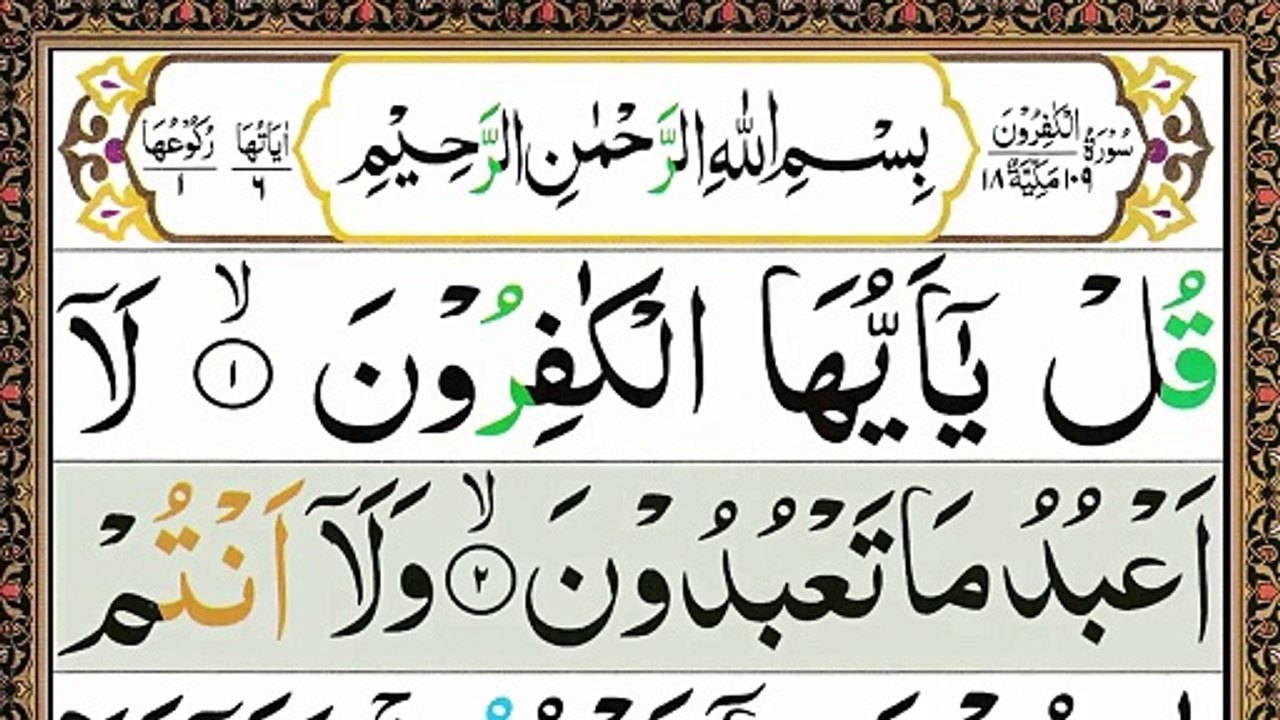 سُوْرَةُ الْكٰفِرُوْنَ
١٠٩ مَكِّيَّةٌ ١٨
بِسْمِ اللّٰهِ الرَّحْمٰنِ الرَّحِيْمِ
اٰيَاتُهَا ٦
رُكُوْعُهَا ١
قُلْ يٰٓاَيُّهَا الْكٰفِرُوْنَ ۙ ١ لَآ
اَعْبُدُ مَا تَعْبُدُوْنَ ۙ ٢ وَلَآ اَنْتُمْ